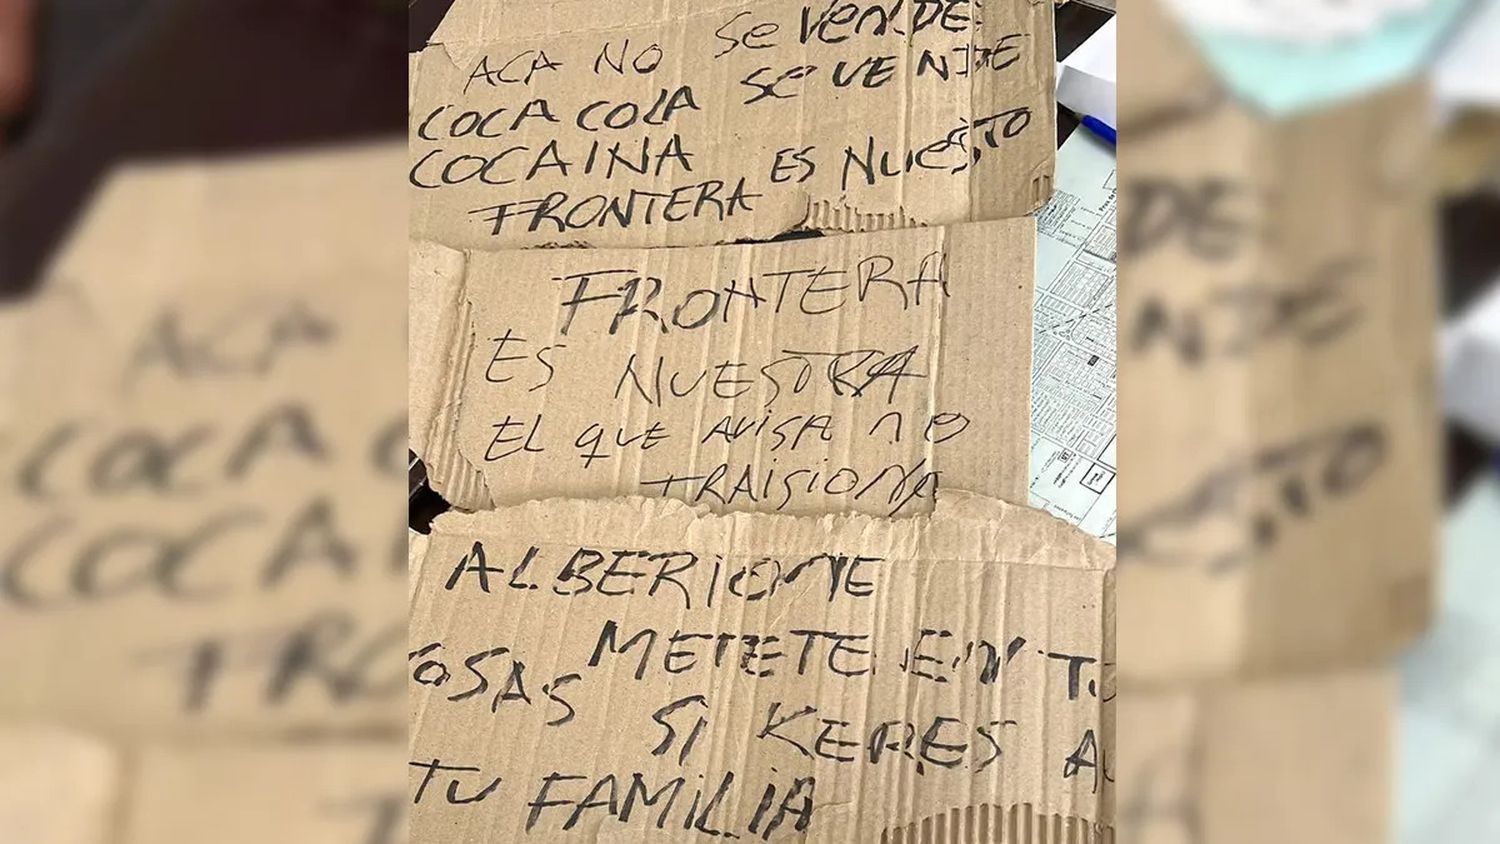 ACA NO Se VENDE
COCA COLA Se VENDE
COCAINA ES NUESTO
FRONTERA
FRONTERA
ES NUESTRA
EL QUE AVISA NO
TRAISIONA
ALBERIONE
METETE EN
OSAS SI KERES
TU FAMILIA